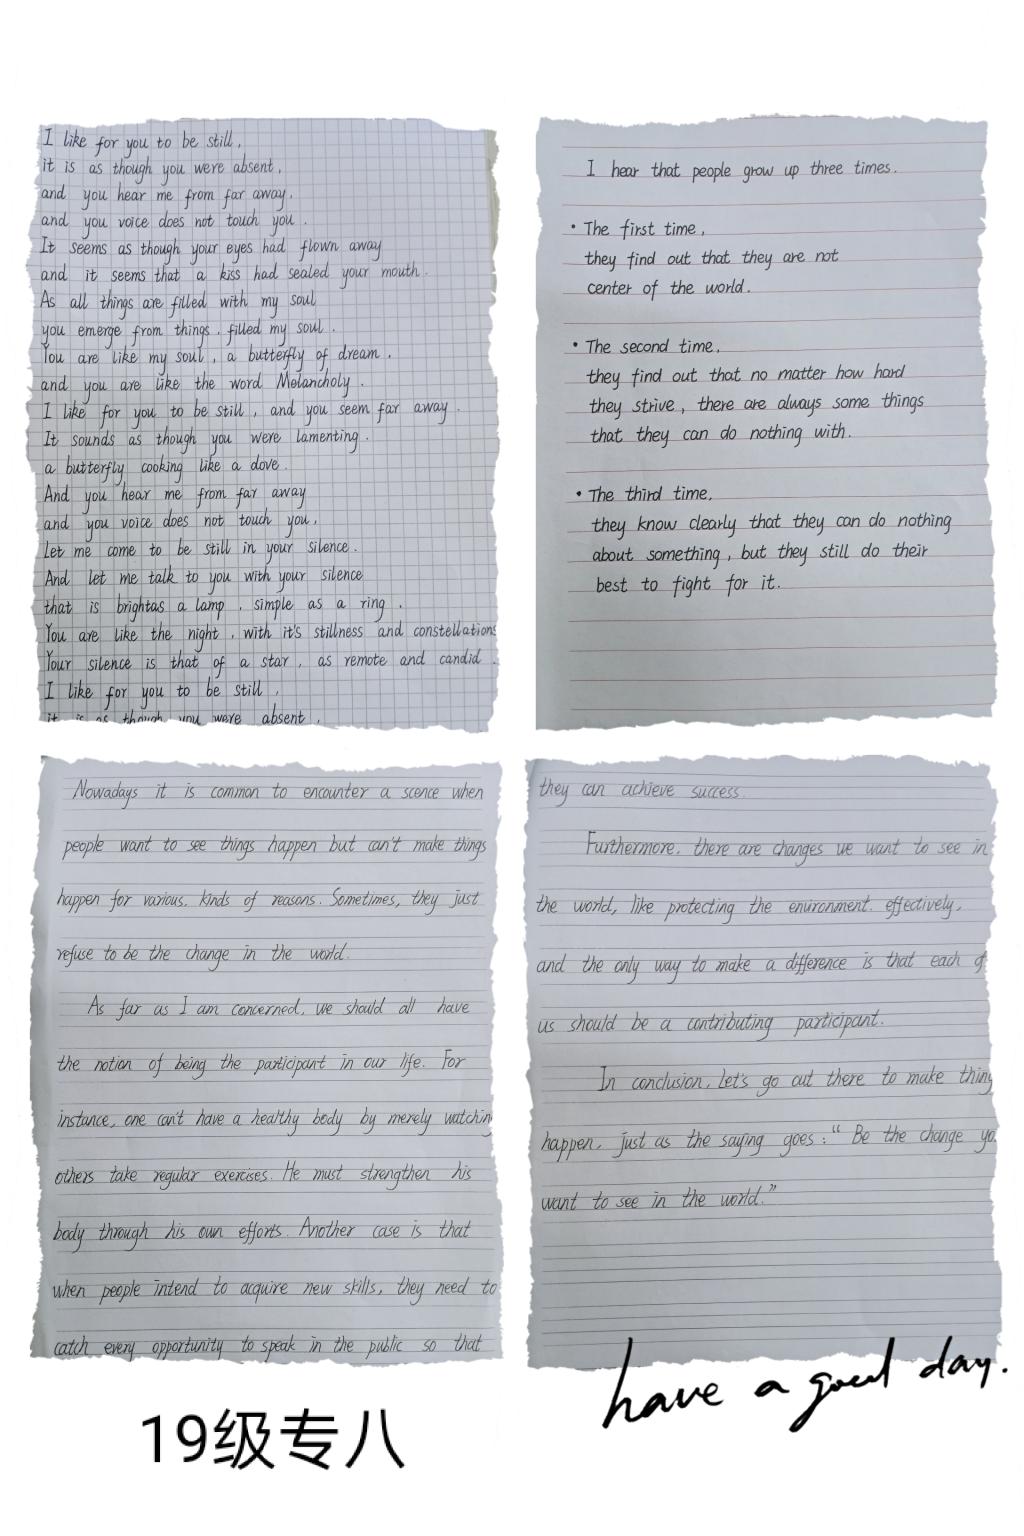 I like for you to be still,
it is as though you were absent,
and you hear me from far away,
and you voice does not touch you.
It seems as though your eyes had flown away
and it seems that a kiss had sealed your mouth.
As all things are filled with my soul
you emerge from things, filled my soul.
You are like my soul, a butterfly of dream,
and you are like the word Melancholy.
I like for you to be still, and you seem far away.
It sounds as though you were lamenting.
a butterfly cooking like a dove.
And you hear me from far away
and you voice does not touch you,
Let me come to be still in your silence.
And let me talk to you with your silence
that is brightas a lamp, simple as a ring.
You are like the night, with it's stillness and constellations
Your silence is that of a star, as remote and candid.
I like for you to be still,
it is as though you were absent,
I hear that people grow up three times.
• The first time,
they find out that they are not
center of the world.
• The second time,
they find out that no matter how hard
they strive, there are always some things
that they can do nothing with.
• The third time,
they know clearly that they can do nothing
about something, but they still do their
best to fight for it.
Nowadays it is common to encounter a scence when
people want to see things happen but can't make things
happen for various. kinds of reasons. Sometimes, they just
refuse to be the change in the world.
As far as I am concerned, we should all have
the notion of being the participant in our life. For
instance, one can't have a healthy body by merely watching
others take regular exercises. He must strengthen his
body through his own efforts. Another case is that
when people intend to acquire new skills, they need to
catch every opportunity to speak in the public so that
they can achieve success.
Furthermore, there are changes we want to see in
the world, like protecting the environment. effectively,
and the only way to make a difference is that each of
us should be a contributing participant.
In conclusion, Let's go out there to make thing
happen, just as the saying goes: "Be the change yo
want to see in the world."
have a good day.
19级专八